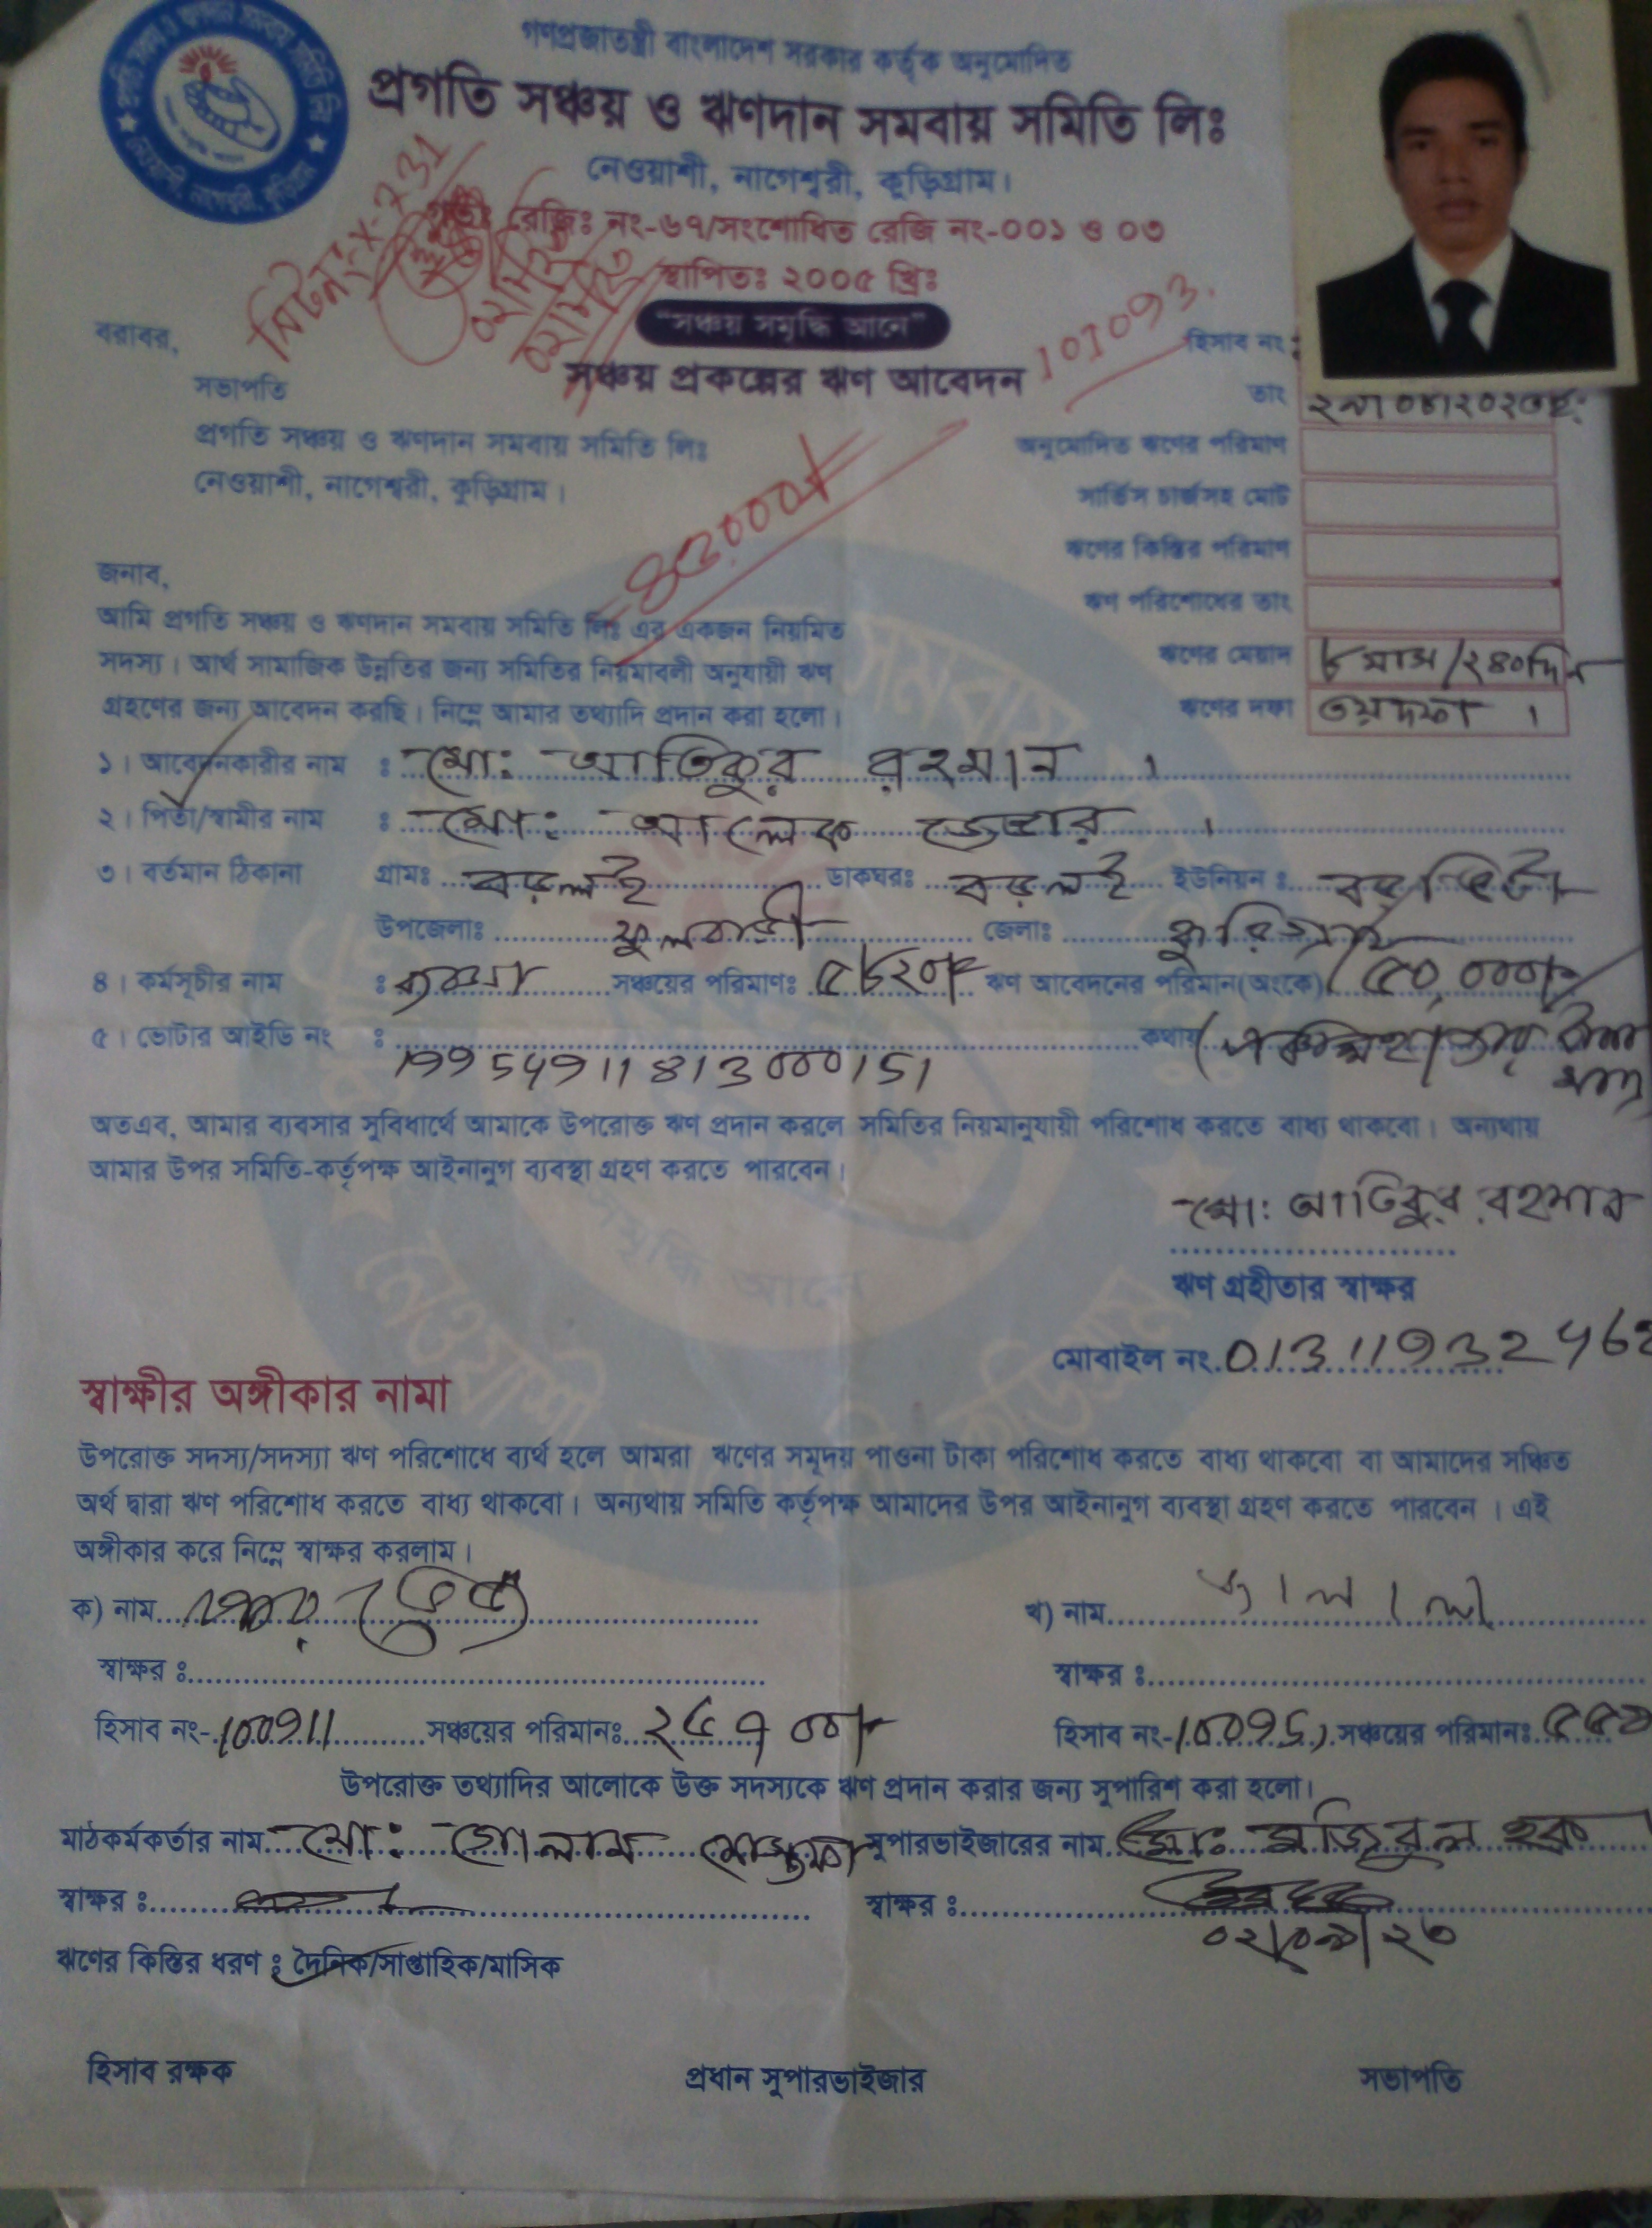 গণপ্রজাতন্ত্রী বাংলাদেশ সরকার কর্তৃক অনুমোদিত
প্রগতি সঞ্চয় ও ঋণদান সমবায় সমিতি লিঃ
নেওয়াশী, নাগেশ্বরী, কুড়িগ্রাম।
রেজিঃ নং-৬৭/সংশোধিত রেজি নং-০০১ ও ০৩
স্থাপিতঃ ২০০৫ খ্রিঃ
"সঞ্চয় সমৃদ্ধি আনে"
সঞ্চয় প্রকল্পের ঋণ আবেদন
101093.
হিসাব নং :
তাং
অনুমোদিত ঋণের পরিমাণ
সার্ভিস চার্জসহ মোট
ঋণের কিস্তির পরিমাণ
ঋণ পরিশোধের তাং
ঋণের মেয়াদ ৮ মাস/২৪০দিন
ঋণের দফা ৩য় দফা ।
বরাবর,
সভাপতি
প্রগতি সঞ্চয় ও ঋণদান সমবায় সমিতি লিঃ
নেওয়াশী, নাগেশ্বরী, কুড়িগ্রাম।
জনাব,
আমি প্রগতি সঞ্চয় ও ঋণদান সমবায় সমিতি লিঃ এর একজন নিয়মিত
সদস্য। আর্থ সামাজিক উন্নতির জন্য সমিতির নিয়মাবলী অনুযায়ী ঋণ
গ্রহণের জন্য আবেদন করছি। নিম্নে আমার তথ্যাদি প্রদান করা হলো।
১। আবেদনকারীর নাম : মো: আতিকুর রহমান ।
২। পিতা/স্বামীর নাম : মো: আলেক
৩। বর্তমান ঠিকানা গ্রামঃ বড়লই ডাকঘরঃ বড়লই ইউনিয়ন :
উপজেলাঃ ফুলবাড়ী জেলাঃ কুরিগ্রাম
৪। কর্মসূচীর নাম : ব্যবসা সঞ্চয়ের পরিমাণঃ ৫৮২০/= ঋণ আবেদনের পরিমান(অংকে) ৫০,০০০/=
৫। ভোটার আইডি নং : 19954911813000151 কথায়
অতএব, আমার ব্যবসার সুবিধার্থে আমাকে উপরোক্ত ঋণ প্রদান করলে সমিতির নিয়মানুযায়ী পরিশোধ করতে বাধ্য থাকবো। অন্যথায়
আমার উপর সমিতি-কর্তৃপক্ষ আইনানুগ ব্যবস্থা গ্রহণ করতে পারবেন।
মো: আতিকুর রহমান
ঋণ গ্রহীতার স্বাক্ষর
মোবাইল নং
স্বাক্ষীর অঙ্গীকার নামা
উপরোক্ত সদস্য/সদস্যা ঋণ পরিশোধে ব্যর্থ হলে আমরা ঋণের সমূদয় পাওনা টাকা পরিশোধ করতে বাধ্য থাকবো বা আমাদের সঞ্চিত
অর্থ দ্বারা ঋণ পরিশোধ করতে বাধ্য থাকবো। অন্যথায় সমিতি কর্তৃপক্ষ আমাদের উপর আইনানুগ ব্যবস্থা গ্রহণ করতে পারবেন । এই
অঙ্গীকার করে নিম্নে স্বাক্ষর করলাম।
ক) নাম খ) নাম
স্বাক্ষর : স্বাক্ষর :
হিসাব নং-100911 সঞ্চয়ের পরিমানঃ হিসাব নং- সঞ্চয়ের পরিমানঃ
উপরোক্ত তথ্যাদির আলোকে উক্ত সদস্যকে ঋণ প্রদান করার জন্য সুপারিশ করা হলো।
মাঠকর্মকর্তার নাম মো: গোলাম মোস্তফা সুপারভাইজারের নাম মোঃ মজিবুল হক
স্বাক্ষর : স্বাক্ষর :
০২/০৯/২৩
ঋণের কিস্তির ধরণ : দৈনিক/সাপ্তাহিক/মাসিক
হিসাব রক্ষক প্রধান সুপারভাইজার সভাপতি